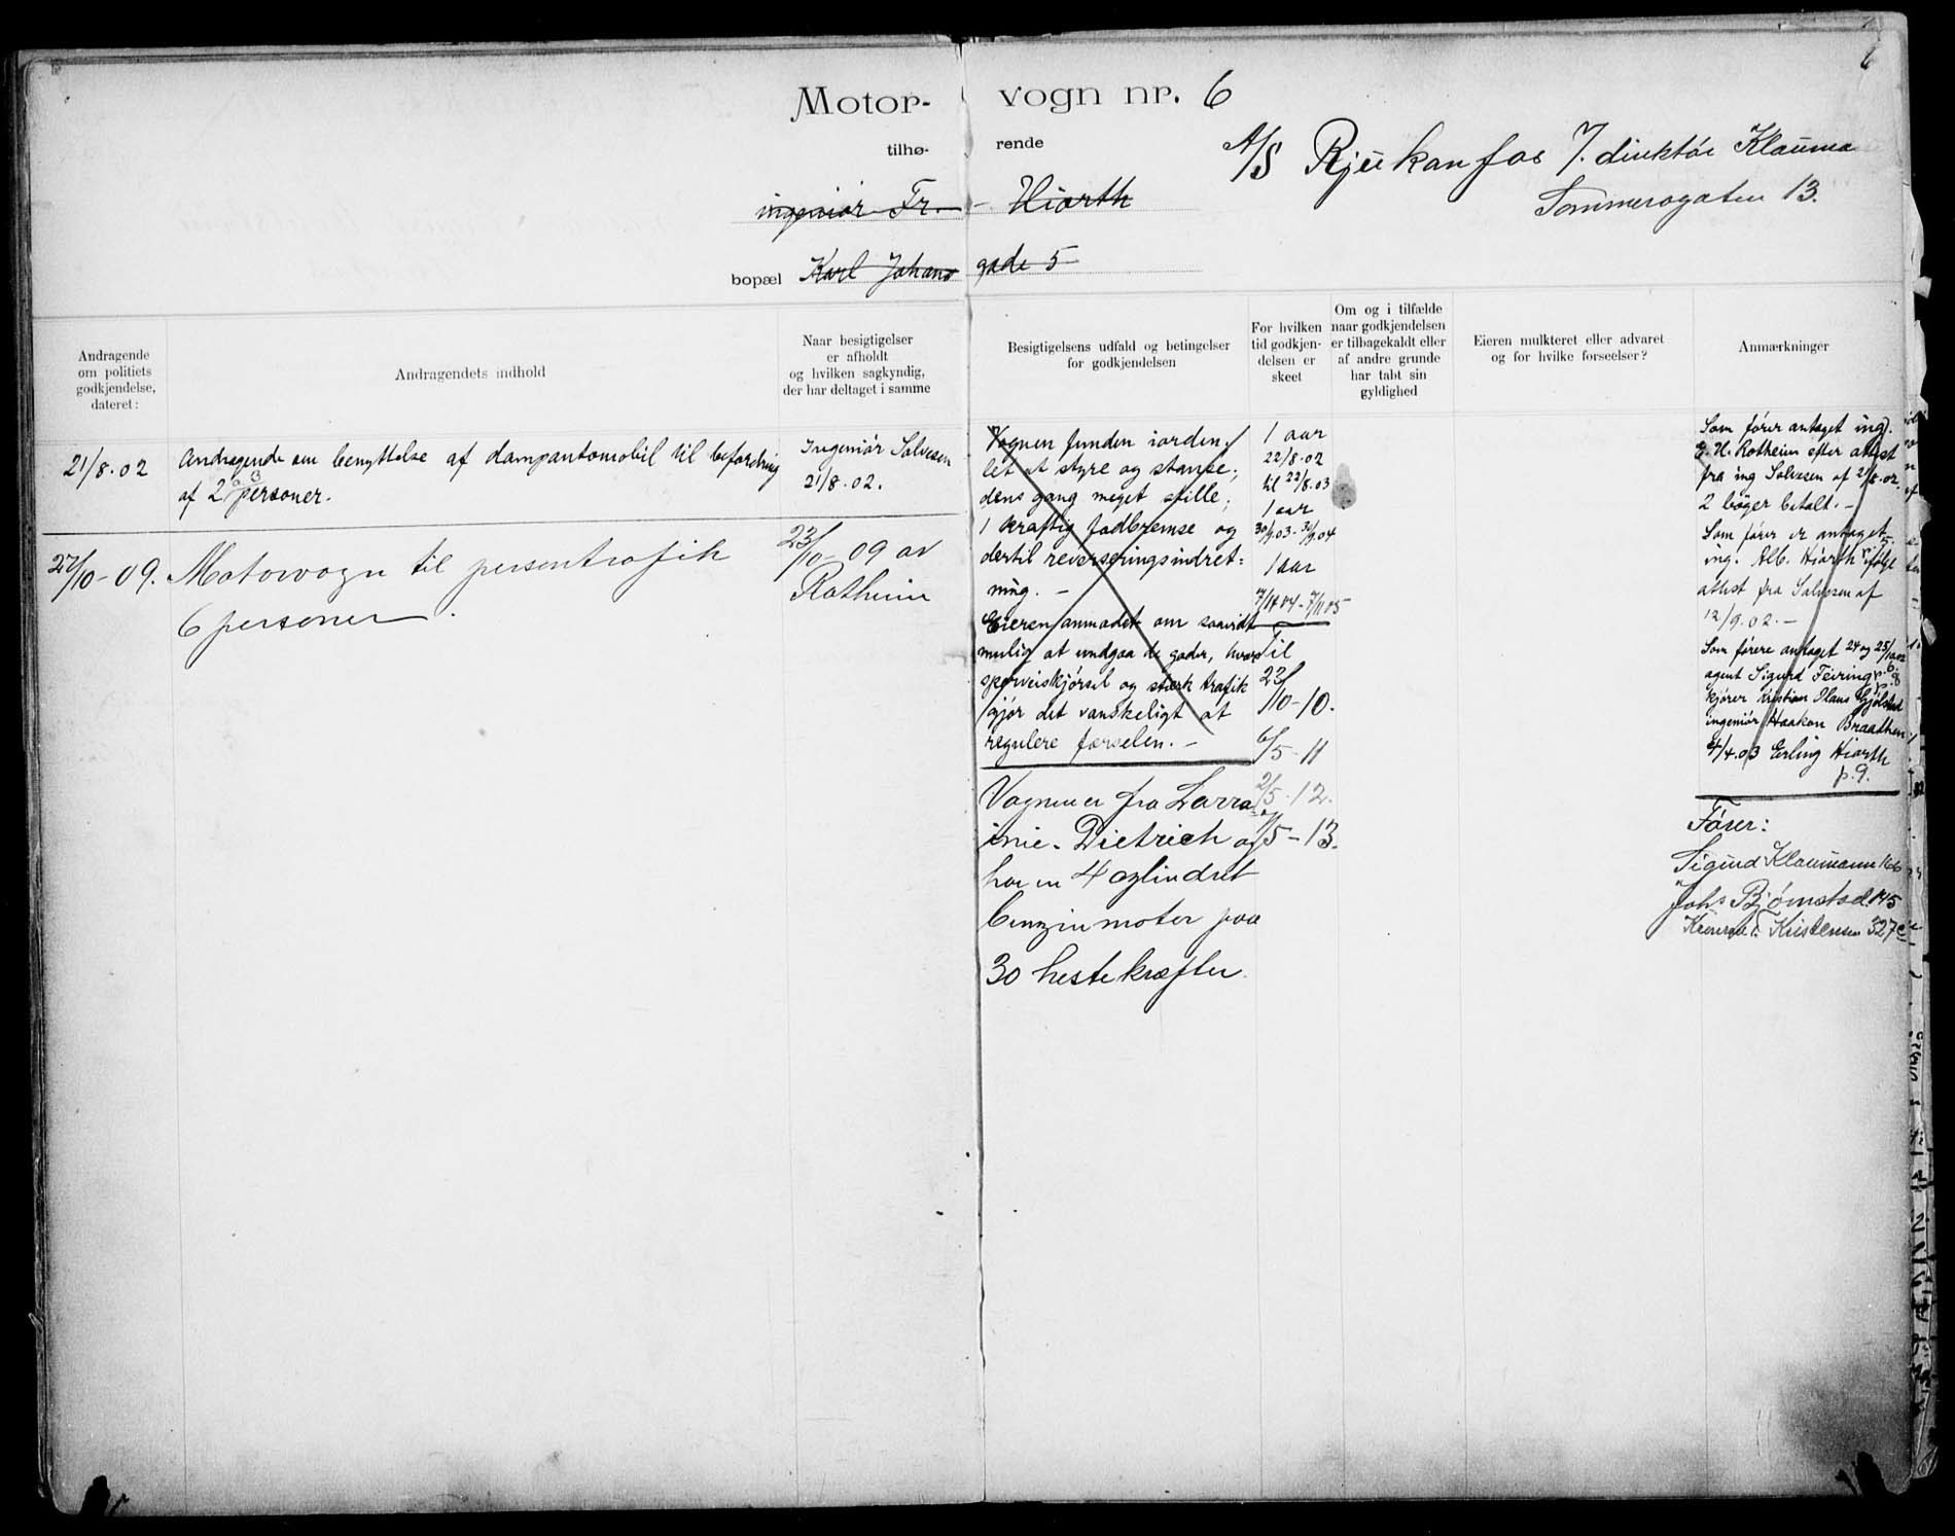 6
Motor- vogn nr. 6
tilhø- rende
A/S Rjukanfos v. direktør Klauma
Sommerogaten 13.
ingeniør Fr. - Hiorth
bopæl Karl Johans gade 5
Andragende
om politiets
godkjendelse,
dateret:
Andragendets indhold
Naar besigtigelser
er afholdt
og hvilken sagkyndig,
der har deltaget i samme
Besigtigelsens udfald og betingelser
for godkjendelsen
For hvilken
tid godkjen-
delsen er
skeet
Om og i tilfælde
naar godkjendelsen
er tilbagekaldt eller
af andre grunde
har tabt sin
gyldighed
Eieren mulkteret eller advaret
og for hvilke forseelser?
Anmærkninger
21/8. 02
Andragende om benyttelse af dampautomobil til befordring
af 2 à 3 personer.
Ingeniør Salvesen
21/8. 02.
27/10-09.
Motorvogn til persontrafik
6 personer.
23/10-09 av
Rotheim
Vognen funden i orden;
let at styre og stanse;
dens gang meget stille;
1 kraftig fodbremse og
dertil reverseringsindret-
ning. -
Eieren anmodet om saavidt
mulig at undgaa de gader, hvor
sporveiskjørsel og stærk trafik
gjør det vanskeligt at
regulere færselen. -
Vognen er fra Lorra
inie-Dietrich og
har en 4 cylindret
benzinmotor paa
30 hestekræfter.
1 aar
22/8.02
til 22/8.03
1 aar
30/9.03-30/9.04
1 aar
7/11 04-7/11 05
Til
23/10-10.
6/5-11
2/5-12.
/5-13.
Som fører antaget ing.
E. H. Rotheim efter attest
fra ing Salvesen af 21/8.02.
2 bøger betalt. -
Som fører er antaget
ing. Alb. Hiorth ifølge
attest fra Salvesen af
12/9.02. -
Som førere antaget 24 og 25/10 02
agent Sigurd Feiring p. 6
kjører Kristian Olaus Gjølstad p. 8
ingeniør Haakon Braathen
4/4.03 Erling Hiorth
p. 9.
Fører:
Sigurd Klaumann 166
Johs Bjørnstad 145
Kristensen 327